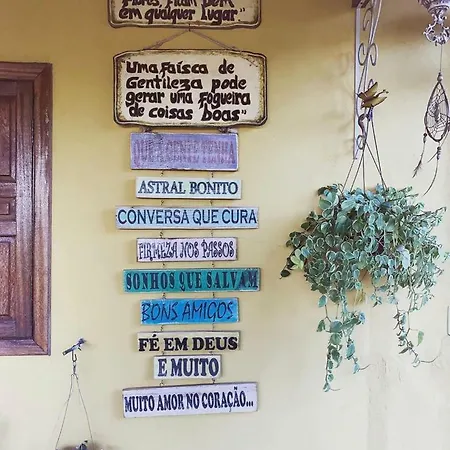 Flores, Ficam bem
em qualquer lugar"
Uma faísca de
Gentileza pode
gerar uma fogueira
de coisas boas"
ASTRAL BONITO
CONVERSA QUE CURA
FIRMEZA NOS PASSOS
SONHOS QUE SALVAM
BONS AMIGOS
FÉ EM DEUS
E MUITO
MUITO AMOR NO CORAÇÃO...